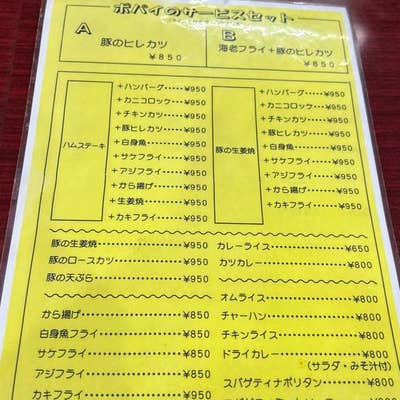 ポパイのサービスセット
A
豚のヒレカツ
¥850
B
海老フライ+豚のヒレカツ
¥850
ハムステーキ
+ハンバーグ・・・・・・¥950
+カニコロッケ・・・・¥950
+チキンカツ・・・・・・¥950
+豚ヒレカツ・・・・・・¥950
+白身魚・・・・・・・・・・¥950
+サケフライ・・・・・・¥950
+アジフライ・・・・・・¥950
+から揚げ・・・・・・・・¥950
+生姜焼・・・・・・・・・・¥950
+カキフライ・・・・・・¥950
豚の生姜焼
+ハンバーグ・・・・・・¥950
+カニコロッケ・・・・¥950
+チキンカツ・・・・・・¥950
+豚ヒレカツ・・・・・・¥950
+白身魚・・・・・・・・・・¥950
+サケフライ・・・・・・¥950
+アジフライ・・・・・・¥950
+から揚げ・・・・・・・・¥950
+カキフライ・・・・・・¥950
豚の生姜焼・・・・・・・・・・・・¥950
豚のロースカツ・・・・・・・・¥950
豚の天ぷら・・・・・・・・・・・・¥950
カレーライス・・・・・・・・・・¥650
カツカレー・・・・・・・・・・・・¥800
から揚げ・・・・・・・・・・・・・・¥850
白身魚フライ・・・・・・・・・・¥850
サケフライ・・・・・・・・・・・・¥850
アジフライ・・・・・・・・・・・・¥850
カキフライ・・・・・・・・・・・・¥950
オムライス・・・・・・・・・・・・¥800
チャーハン・・・・・・・・・・・・¥800
チキンライス・・・・・・・・・・¥800
ドライカレー・・・・・・・・・・¥800
(サラダ・みそ汁付)
スパゲティナポリタン・・¥800
¥800